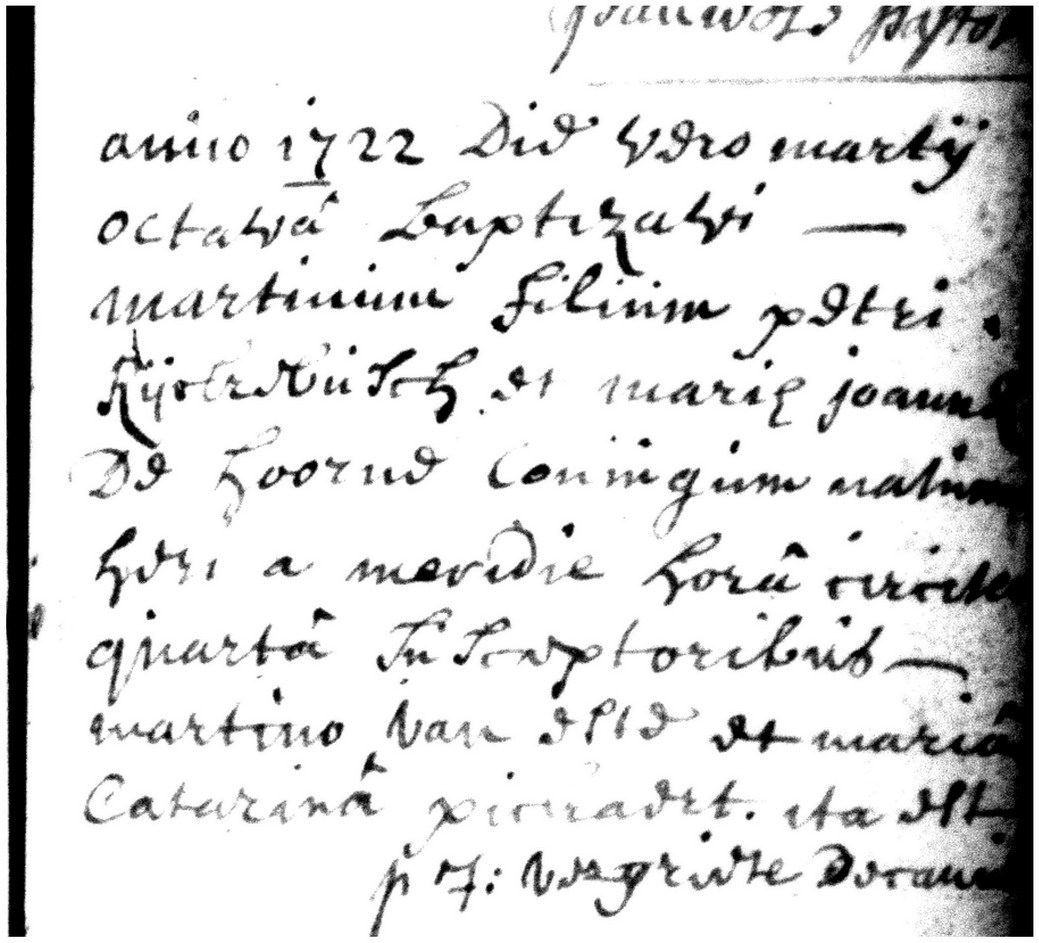 pastor
anno 1722 Die vero martij
octavâ Baptizavi —
martinum filium petri
et marię joannę
De hoorne Coniugum natum
heri a meridie horâ circiter
quartâ Susceptoribus —
martino van elst et mariâ
Catarinâ ita est